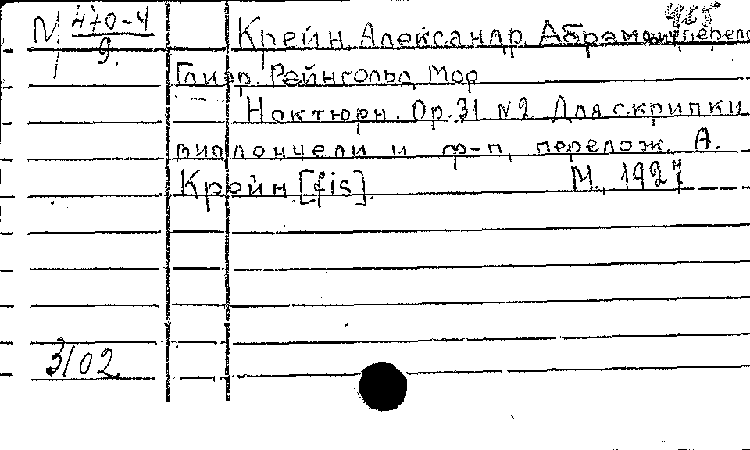 N 470-4
9.
Крейн, Александр Абрамович, перел
Глиэр, Рейнгольд Мор
Ноктюрн. Op. 31 N2 Для скрипки
виолончели и ф-п, перелож. А.
Крейн [fis]. М., 1927
3102